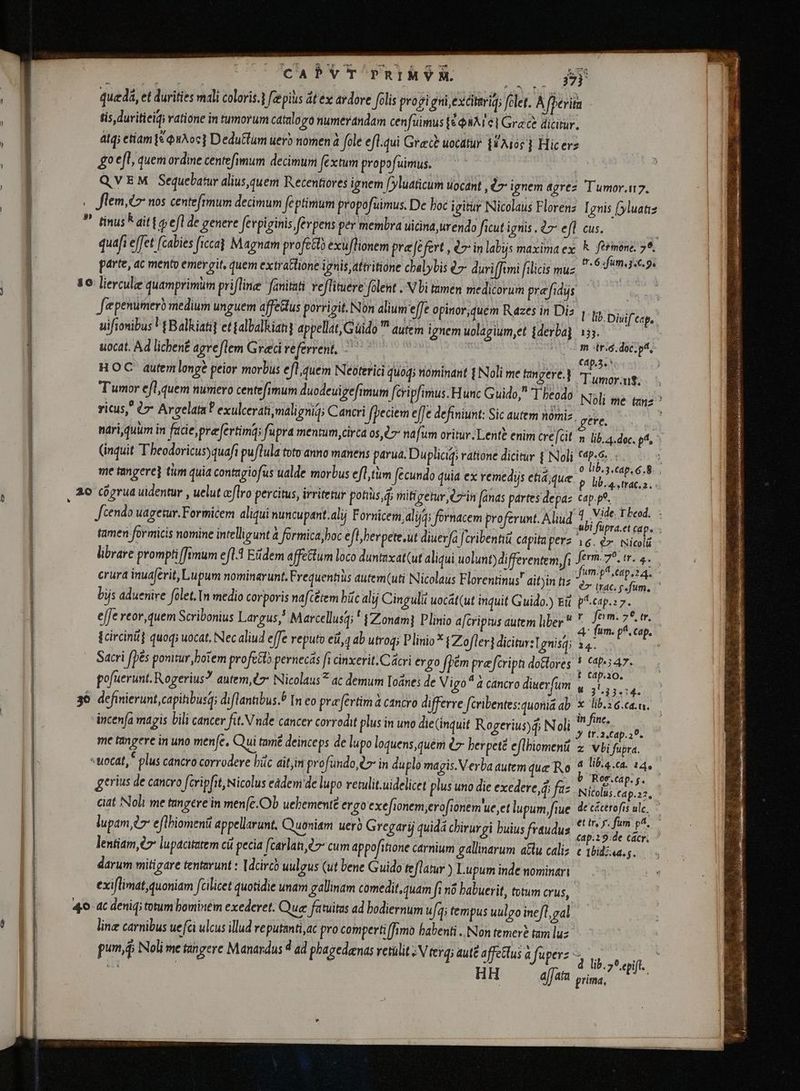 CAPVT PRIMVM.
quædã, et durities mali coloris.} sæpius ãt ex ardore solis progigni, excitariq; solet. A speritatis, duritieiq; ratione in tumorum catalogo numerandam censuimus
dicitur,
atq; etiam Deductum uero nomen à sole est. qui Græcè uocatur Hic er=
go est, quem ordine centesimum decimum sextum proposuimus.
QVEM Sequebatur alius, quem Recentiores ignem syluaticum uocant, & ignem agre=
Tumor.117.
stem, & nos centesimum decimum septimum proposuimus. De hoc igitur Nicolaus Floren=
Ignis syluatis
tinus k ait {est de genere serpiginis, serpens per membra uicina, urendo sicut ignis, & est
cus.
quasi esset scabies sicca} Magnam profectò exustionem præ se fert, & in labijs maxima ex
k sermone. 7º.
parte, ac mento emergit, quem extractione ignis, attritione chalybis & durissimi silicis mu=
10 lierculæ quamprimùm pristinæ sanitati restituere solent. Vbi tamen medicorum præsidijs
sæpenumerò medium unguem affectus porrigit. Non alium esse opinor, quem Razes in Di=
l lib. Diuis. cap.
uisionibus l {Balkiati} et {albalkian} appellat, Guido m autem ignem uolagium, et {derba}
133.
uocat. Ad lichenẽ agrestem Græci referrent.
m tr.6. doc. pª.
cap.3.
HOC autem longè peior morbus est, quem Neoterici quoq; nominant {Noli me tangere.}
Tumor.118.
Tumor est, quem numero centesimum duodeuigesimum scripsimus. Hunc Guido, n Theodo
Noli me tan=
ricus, o & Argelata p exulcerati, maligniq; Cancri speciem esse definiunt: Sic autem nomi=
gere.
nari, quùm in facie, præsertimq; supra mentum, circa os, & nasum oritur. Lentè enim crescit
n lib.4. doc. pª,
(inquit Theodoricus) quasi pustula toto anno manens parua. Dupliciq; ratione dicitur {Noli
cap.6.
me tangere} tùm quia contagiosus ualde morbus est, tùm secundo quia ex remedijs etiã, quæ
o lib.3. cap.6.8.
p lib.4. trac.2.
20 cõgrua uidentur, uelut œstro percitus, irritetur potiùs, ꝗ̃ mitigetur, & in sanas partes depa=
cap. pº.
scendo uagetur. Formicem aliqui nuncupant. alij Fornicem, alijq; fornacem proferunt. Aliud q
q Vide. Theod.
ubi supra. et cap.
tamen formicis nomine intelligunt à formica, hoc est, herpete, ut diuersa scribentiũ capita per=
16. & Nicolã
librare promptissimum est. Eũdem affectum loco duntaxat (ut aliqui uolunt) differentem, si
serm. 7º. tr. 4.
crura inuaserit, Lupum nominarunt. Frequentiùs autem (uti Nicolaus Florentinus r ait) in ti=
sum. pª. cap.24.
& trac.5. sum.
bijs aduenire solet. In medio corporis nascẽtem hũc alij Cingulũ uocãt (ut inquit Guido.) Eũ
pª. cap.27.
esse reor, quem Scribonius Largus, s Marcellusq; t {Zonam} Plinio ascriptus autem liber u
r serm. 7º. tr.
4. sum. pª. cap.
{circinũ} quoq; uocat. Nec aliud esse reputo eũ, ꝗ ab utroq; Plinio x {Zoster} dicitur: Ignisq;
24.
Sacri spẽs ponitur, hoiem profectò pernecãs si cinxerit. Cãcri ergo spẽm præscripti doctores
s cap.47.
posuerunt. Rogerius y autem, & Nicolaus z ac demum Ioãnes de Vigo a à cancro diuersum
t cap.20.
30 definierunt, capitibusq; distantibus. b In eo præsertim à cancro differre scribentes: quoniã ab
x lib.26. ca.11.
incensa magis bili cancer fit. Vnde cancer corrodit plus in uno die (inquit Rogerius) ꝗ̃ Noli
in fine.
y tr.2. cap.2º.
me tangere in uno mense. Qui tamẽ deinceps de lupo loquens, quem & herpetẽ esthiomenũ
z Vbi supra.
uocat, c plus cancro corrodere hũc ait, in profundo, & in duplo magis. Verba autem quæ Ro
a lib.4. ca. 14.
gerius de cancro scripsit, Nicolus eãdem de lupo retulit. uidelicet plus uno die excedere, ꝗ̃ fa=
b Rog. cap. 5.
Nicolus. cap.27.
ciat Noli me tangere in mense. Ob uehementẽ ergo exesionem, erosionem'ue, et lupum, siue
de cãcerosis ulc.
lupam, & esthiomenũ appellarunt. Quoniam uerò Gregarij quidã chirurgi huius fraudus
et tr. 5. sum pª.
cap.29. de cãcr.
lentiam, & lupacitatem cũ pecia scarlati, & cum appositione carnium gallinarum actu cali=
c ibidẽ. ca. 5.
darum mitigare tentarunt: Idcircò uulgus (ut bene Guido testatur) Lupum inde nominari
existimat, quoniam scilicet quotidie unam gallinam comedit, quam si nõ habuerit, totum crus,
40 ac deniq; totum hominem exederet. Quæ fatuitas ad hodiernum usq; tempus uulgo inest, gal
linæ carnibus uesci ulcus illud reputanti, ac pro compertissimo habenti. Non temerè tam lu=
pum, ꝗ̃ Noli me tangere Manardus d ad phagedænas retulit: Vterq; autẽ affectus à super=
d lib.7º. epist.
prima,
HH
assata